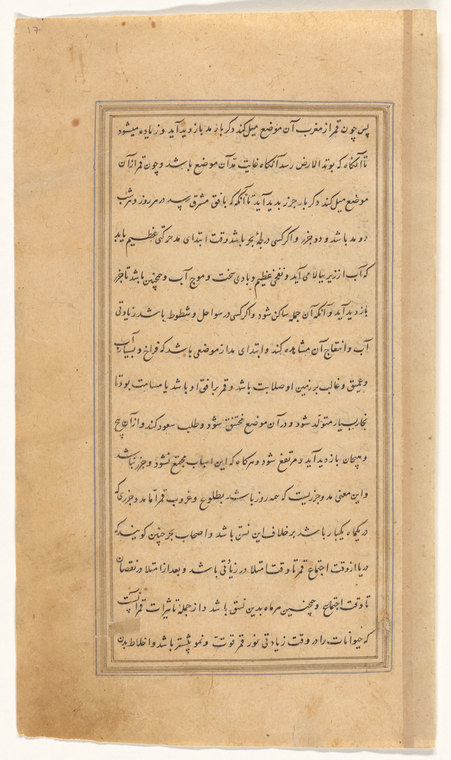 17
پس چون قمر از مغرب آن موضع میل کند دکر بار مد باز دید آید و زیاده میشود
تا آنکاه که بوتد الارض رسد آنکاه غایت مد آن موضع باشد و چون قمر از آن
موضع میل کند دکر بار جزر بدید آید تا آنکه که بافق مشرق رسد در هر روز و شب
دو مد باشد و دو جزر و اکر کسی در لجهٔ بحر باشد وقت ابتدای مد حرکتی عظیم یابد
که آب از زیر ببالا می آید و نفخی عظیم و بادی سخت و موج آب و همچنین باشد تا جزر
باز دید آید و آنکه آن جمله ساکن شود و اکر کسی در سواحل و شطوط باشد زیادتی
آب و انتفاخ آن مشاهده کند و ابتدای مد از موضعی باشد که فراخ و بسیار آب
و عمیق و غالب بر زمین او صلابت باشد و قمر بر افق او باشد یا مسامت بود تا
بخار بسیار متولد شود و در آن موضع محتقن شود و طلب صعود کند و از آن
و هیجان باز دید آید و مرتفع شود و هرکاه که این اسباب مجتمع نشود و جزر نباشد
و این معنی مد و جزریست که همه روز باشد بطلوع و غروب قمر اما مد و جزری که
در یکماه یکبار باشد بر خلاف این نسق باشد و اصحاب بحر چنین کویند که
دریا از وقت اجتماع قمر تا وقت امتلا در زیادتی باشد و بعد از امتلا در نقصان
تا وقت اجتماع و همچنین هر ماه بدین نسق باشد و از جملهٔ تاثیرات قمر آنست
که حیوانات را در وقت زیادتی نور قمر قوت و نمو بیشتر باشد و اخلاط بدن